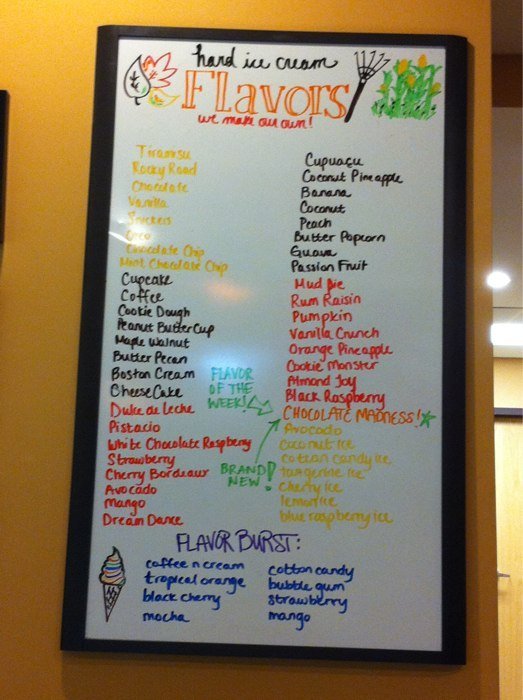 hard ice cream
Flavors
we make our own!
Tiramisu
Rocky Road
Chocolate
Vanilla
Snickers
Oreo
Chocolate Chip
Mint Chocolate Chip
Cupcake
Coffee
Cookie Dough
Peanut Butter Cup
Maple Walnut
Butter Pecan
Boston Cream
Cheese Cake
Dulce de Leche
Pistacio
White Chocolate Raspberry
Strawberry
Cherry Bordeaux
Avocado
Mango
Dream Dance
Cupuaçu
Coconut Pineapple
Banana
Coconut
Peach
Butter Popcorn
Guava
Passion Fruit
Mud Pie
Rum Raisin
Pumpkin
Vanilla Crunch
Orange Pineapple
Cookie Monster
Almond Joy
Black Raspberry
CHOCOLATE MADNESS!
Avocado
coconut ice
cotton candy ice
tangerine ice
cherry ice
lemon ice
blue raspberry ice
FLAVOR
OF THE
WEEK!
BRAND
NEW!
FLAVOR BURST:
coffee n cream
tropical orange
black cherry
mocha
cotton candy
bubble gum
strawberry
mango